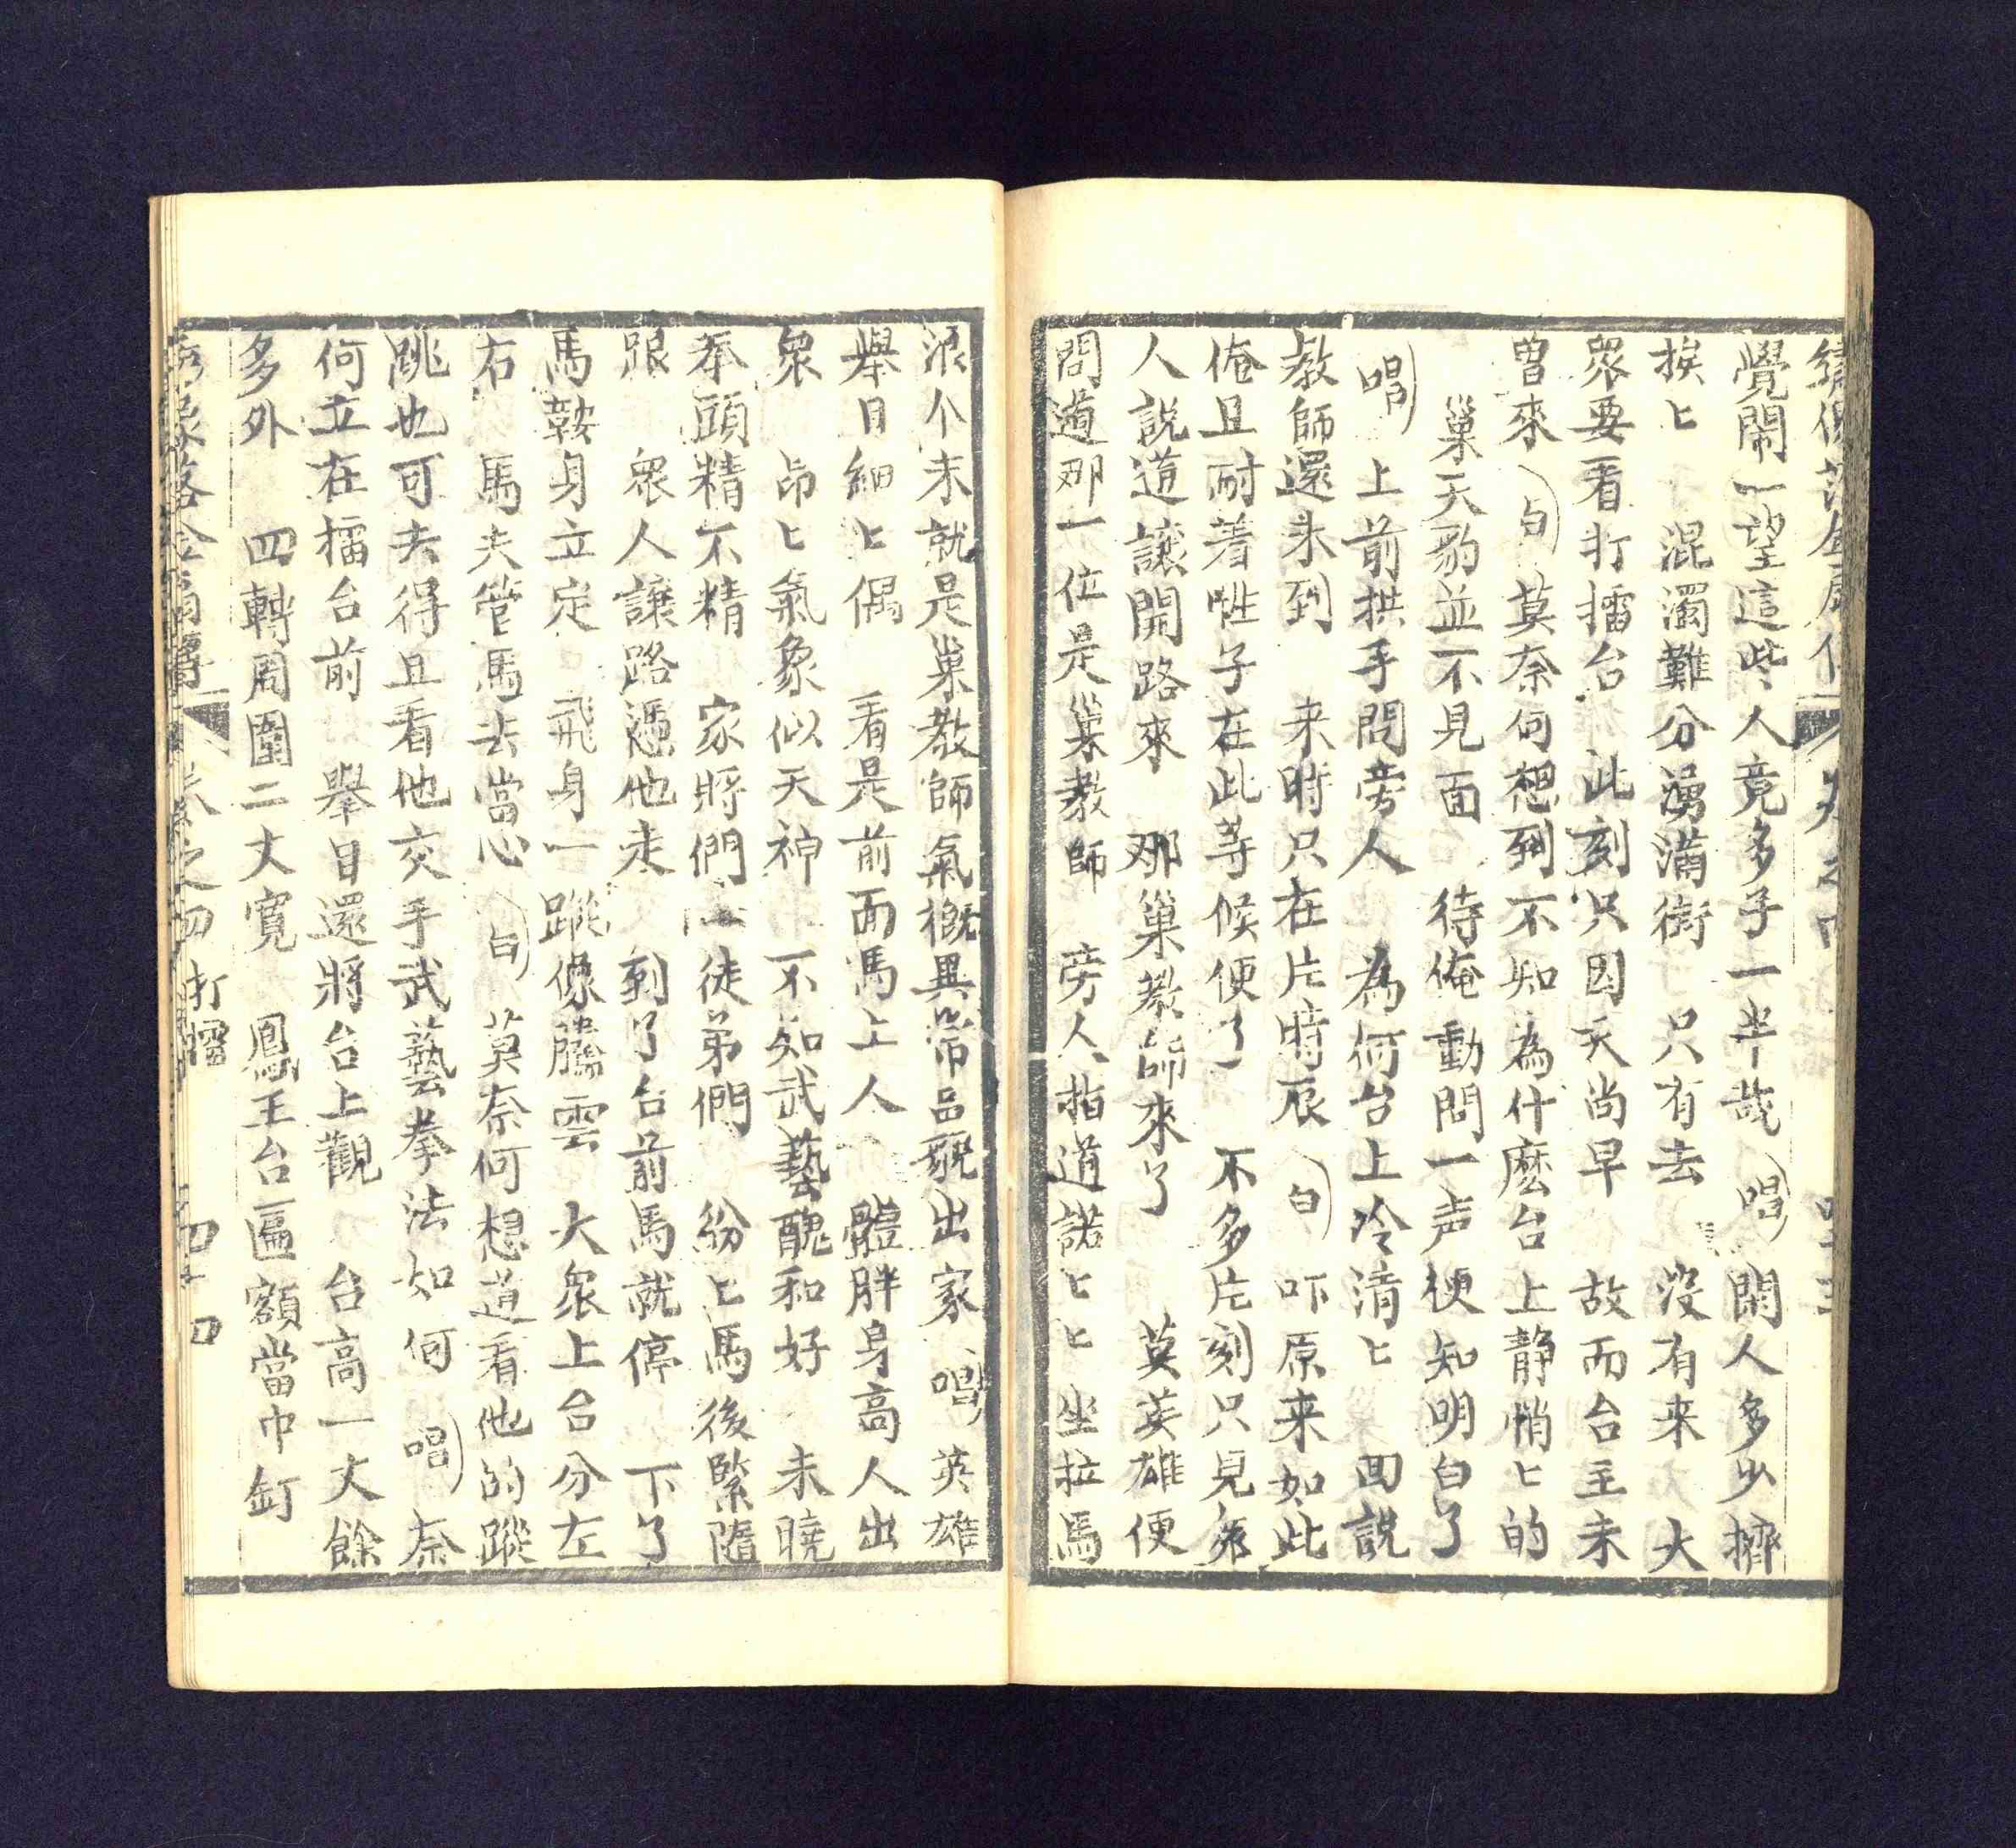 覺鬧一望這些人竟多乎一半哉（唱）閑人多少擠
挨匕　混濁難分湧滿街　只有去　沒有来　大
衆要看打擂台　此刻只因天尚早　故而台主未
曾來（白）莫奈何想到不知為什麽台上静悄匕的
巢天豹並不見面　待俺動問一声便知明白了
（唱）上前拱手問旁人　為何台上冷清匕　回說
教師還未到　来時只在片時辰（白）吓原来如此
俺且耐着性子在此等候便了　不多片刻只見衆
人説道讓開路來　那巢教師來了　莫英雄便
問道那一位是巢教師　旁人指道諾匕匕坐拉馬
浪个末就是巢教師氣概異常品貌出家（唱）英雄
舉目細匕偶　看是前面馬上人　體胖身高人出
衆　昂匕氣象似天神　不知武藝醜和好　未曉
拳頭精不精　家將們　徒弟們　紛匕馬後緊隨
跟　衆人讓路憑他走　到了台前馬就停　下了
馬鞍身立定　飛身一蹤像騰雲　大衆上台分左
右　馬夫管馬去當心（白）莫奈何想道看他的蹤
跳也可去得且看他交手武藝拳法如何（唱）奈
何立在擂台前　舉目還將台上觀　台高一丈餘
多外　四轉周圍二丈寬　鳳王台匾額當中釘
卷之四　打擂　四十四